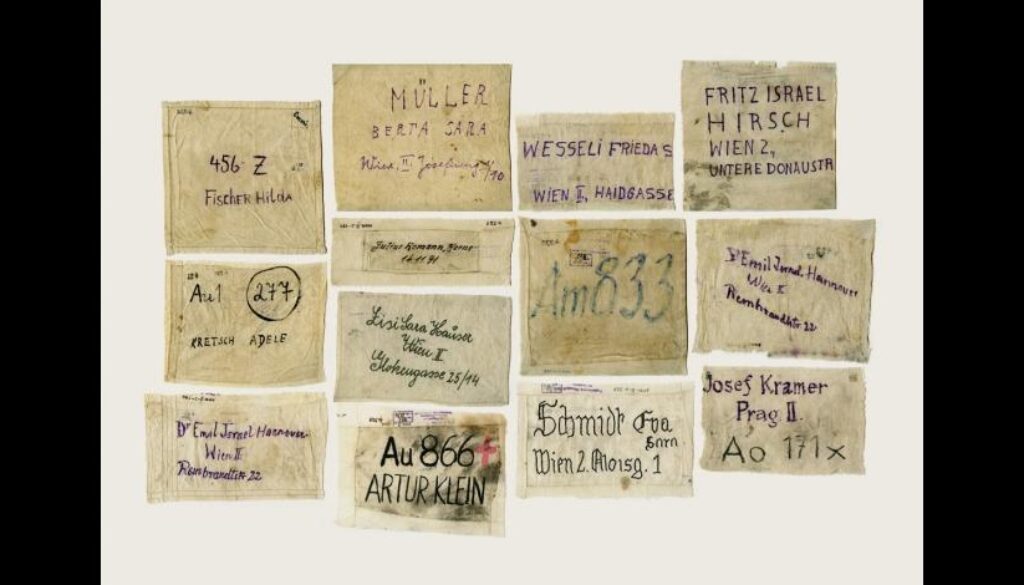 456 Z
Fischer Hilda
MÜLLER
BERTA SARA
Wien, II.
WESSELI FRIEDA S
WIEN II, HAIDGASSE
FRITZ ISRAEL
HIRSCH
WIEN 2,
UNTERE DONAUSTR
Au1 277
KRETSCH ADELE
Julius
Lisi Sara Hauser
Wien II
25/14
Am 833
Dr Emil Israel Hannover
Wien II
Rembrandtstr. 22
Dr Emil Israel Hannover
Wien II
Rembrandtstr 22
Au 866+
ARTUR KLEIN
Schmidt Eva
Sara
Wien 2. Aloisg. 1
Josef Kramer
Prag II.
Ao 171x